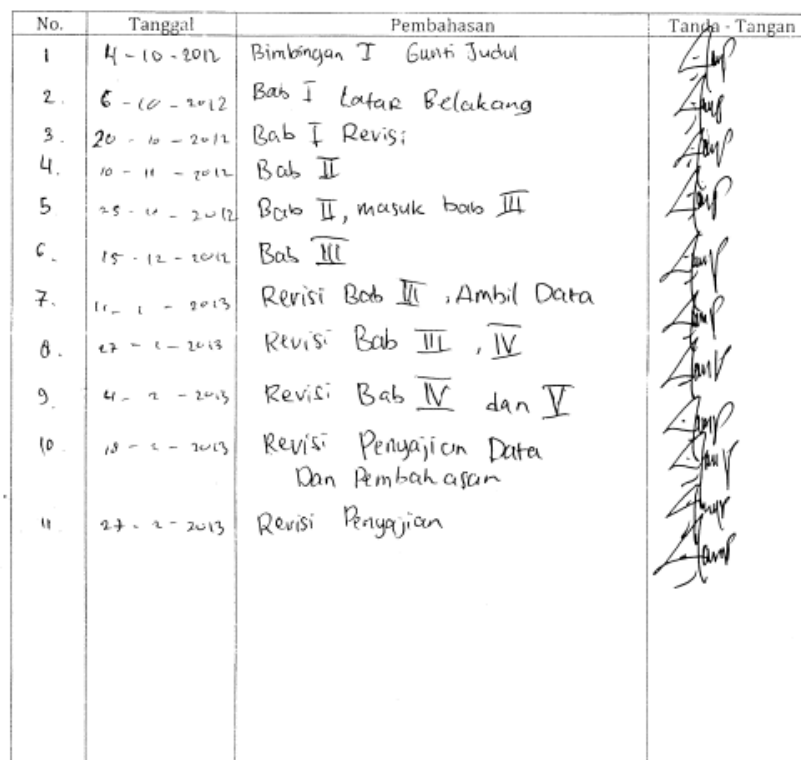 No. Tanggal Pembahasan Tanda - Tangan
1 4 - 10 - 2012 Bimbingan I Ganti Judul
2. 6 - 10 - 2012 Bab I Latar Belakang
3. 20 - 10 - 2012 Bab I Revisi
4. 10 - 11 - 2012 Bab II
5. 25 - 11 - 2012 Bab II, masuk bab III
6. 15 - 12 - 2012 Bab III
7. 11 - 1 - 2013 Revisi Bab III, Ambil Data
8. 27 - 1 - 2013 Revisi Bab III, IV
9. 4 - 2 - 2013 Revisi Bab IV dan V
10. 18 - 2 - 2013 Revisi Penyajian Data
Dan Pembahasan
11 27 - 2 - 2013 Revisi Penyajian